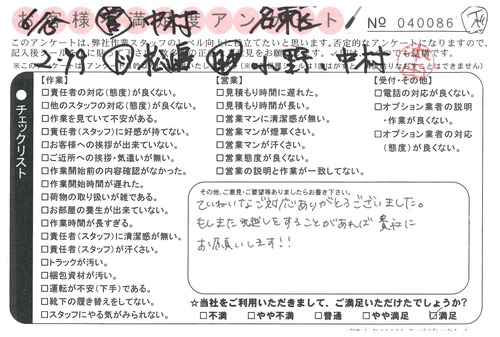 お客様満足度アンケート
№ 040086
このアンケートは、弊社作業スタッフのレベル向上に役立てたいと思います。否定的なアンケートになりますので、
【作業】
□責任者の対応(態度)が良くない。
□他のスタッフの対応(態度)が良くない。
□作業を見ていて不安がある。
□責任者(スタッフ)に好感が持てない。
□お客様への挨拶が出来ていない。
□ご近所への挨拶・気遣いが無い。
□作業開始前の内容確認がなかった。
□作業開始時間が遅れた。
□荷物の取り扱いが雑である。
□お部屋の養生が出来ていない。
□作業時間が長すぎる。
□責任者(スタッフ)に清潔感が無い。
□責任者(スタッフ)が汗くさい。
□トラックが汚い。
□梱包資材が汚い。
□運転が不安(下手)である。
□靴下の履き替えをしてくれない。
□スタッフにやる気がみられない。
【営業】
□見積もり時間に遅れた。
□見積もり時間が長い。
□営業マンに清潔感が無い。
□営業マンが煙草くさい。
□営業マンが汗くさい。
□営業態度が良くない。
□営業の説明と作業が一致してない。
【受付・その他】
□電話の対応が良くない。
□オプション業者の説明
・作業が良くない。
□オプション業者の対応
(態度)が良くない。
チェックリスト
その他、ご意見・ご要望等ありましたらお書き下さい。
ていねいなご対応ありがとうございました。
もしまた引越しをすることがあれば貴社に
お願いします!!
☆当社をご利用いただきまして、ご満足いただけでしょうか?
□不満 □やや不満 □普通 □やや満足 ☑満足